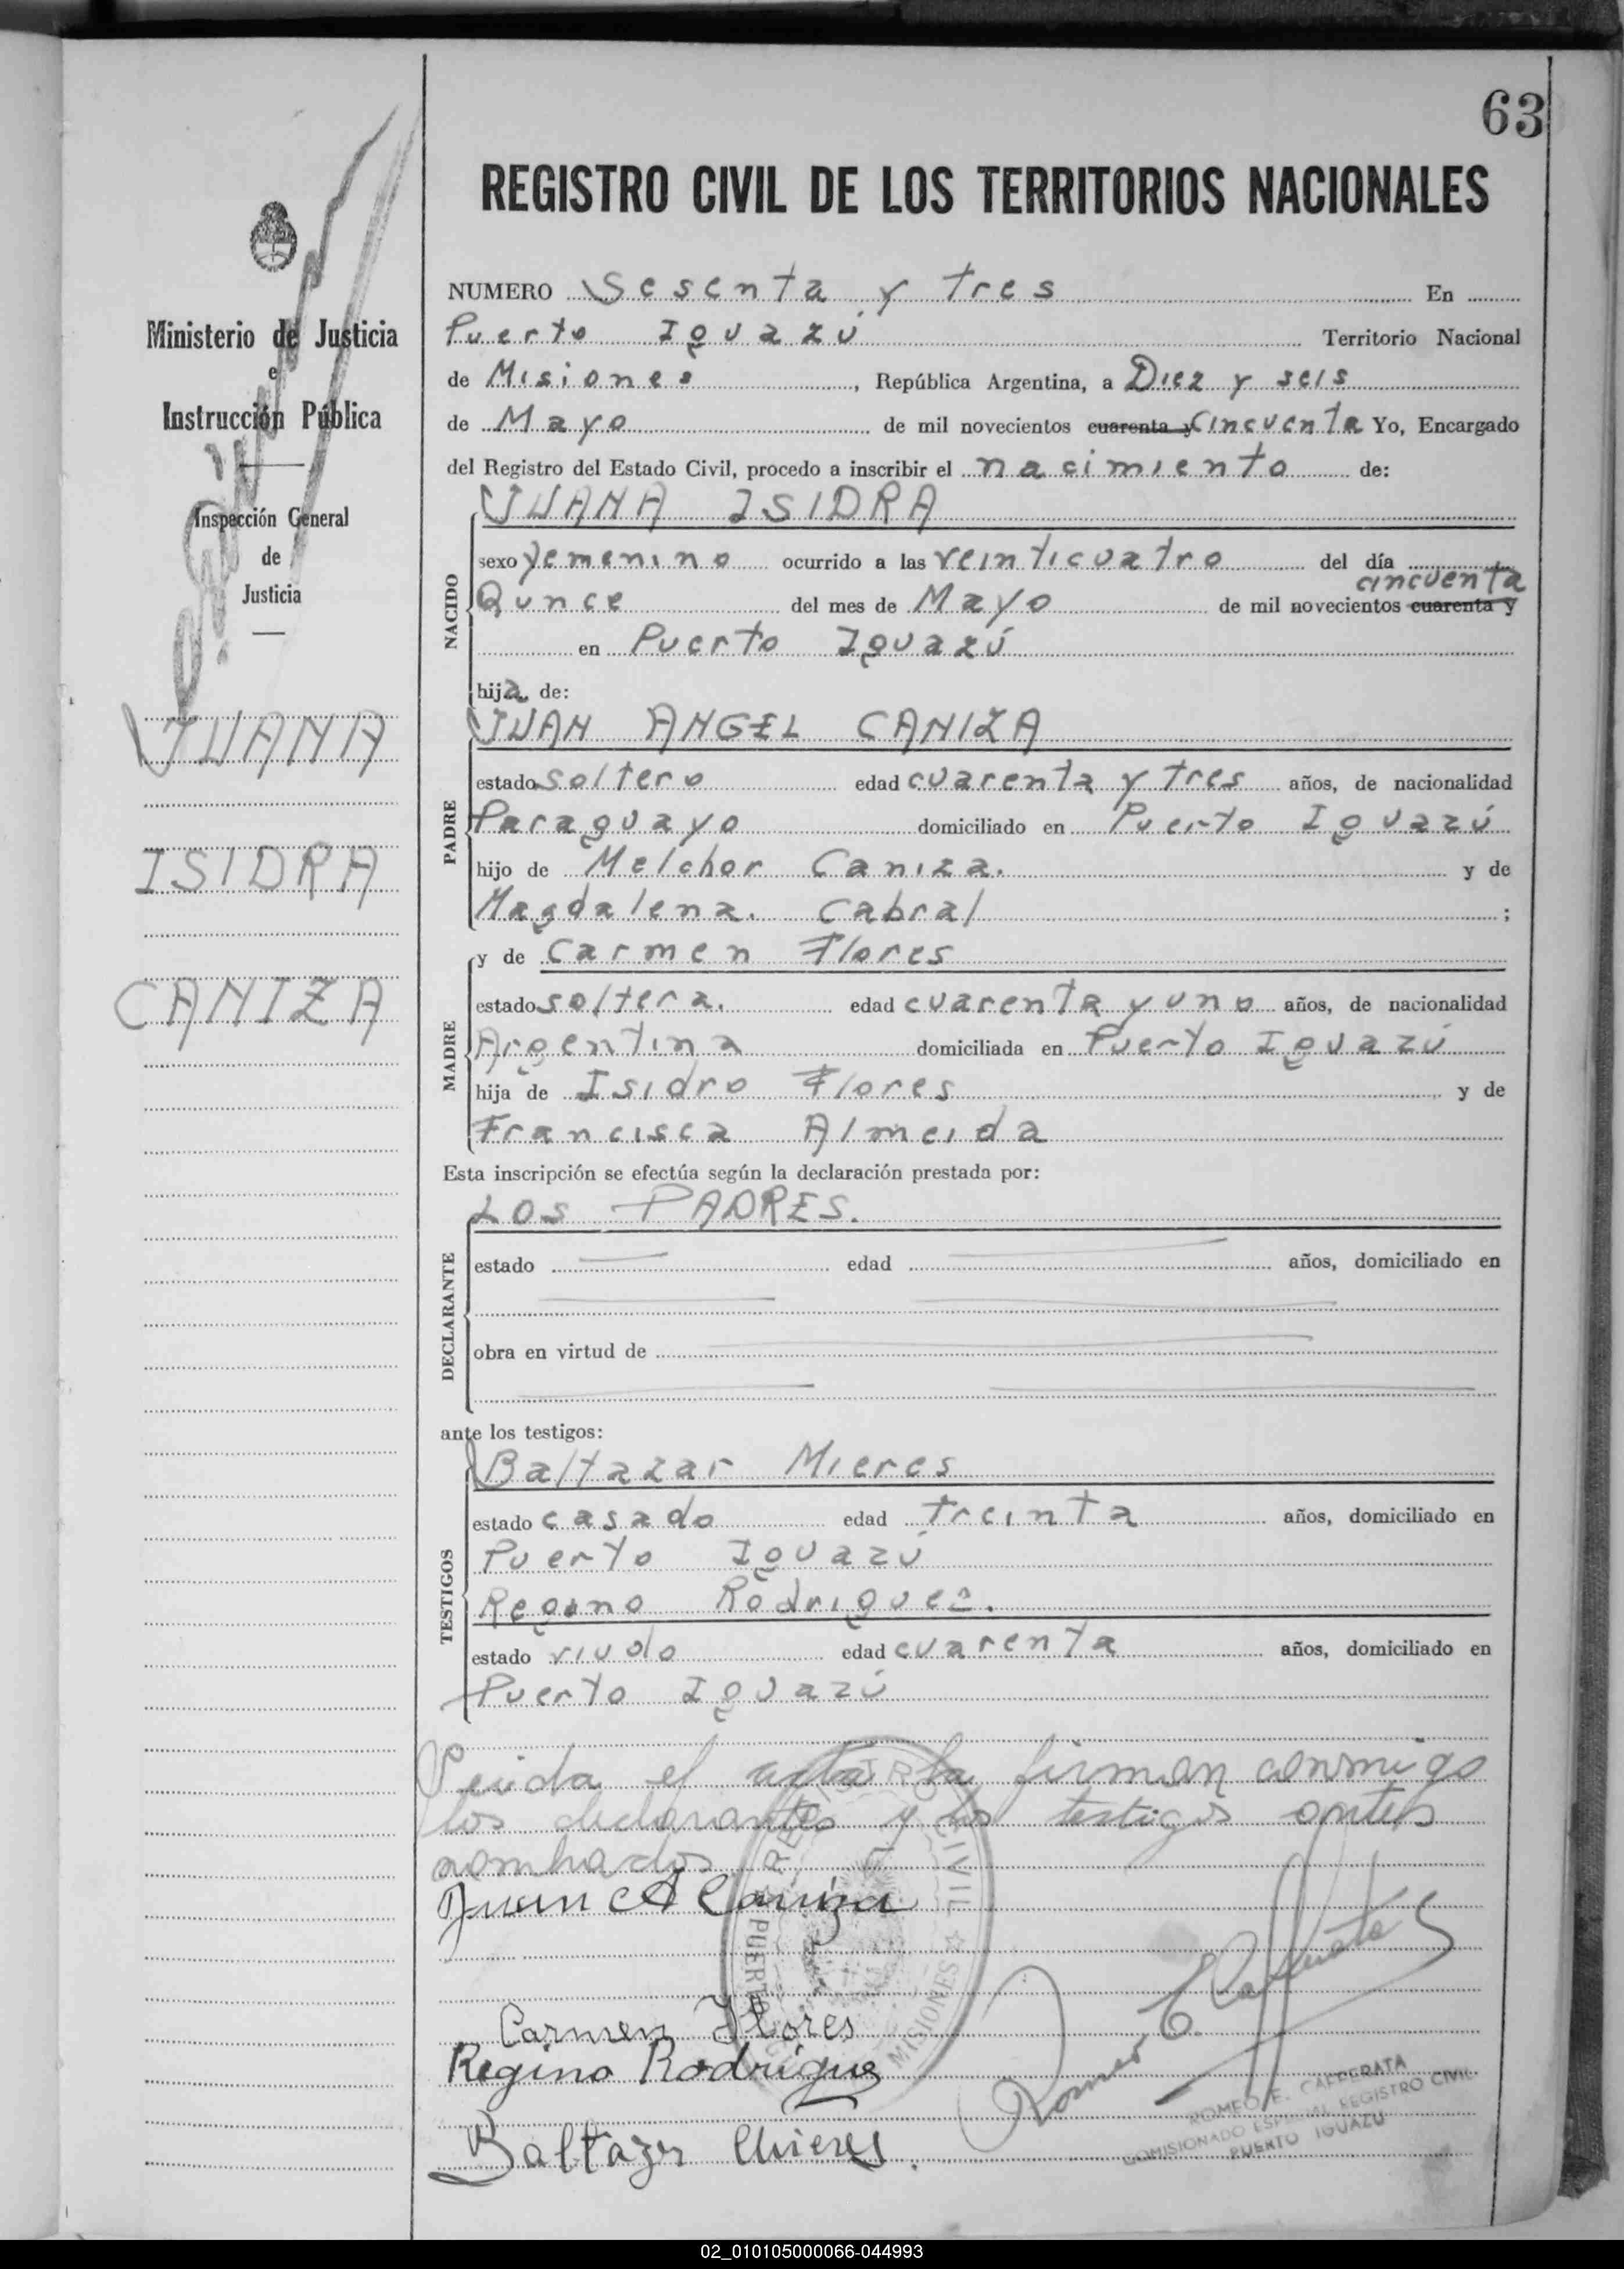 63
REGISTRO CIVIL DE LOS TERRITORIOS NACIONALES
Ministerio de Justicia
e
Instrucción Pública
Inspección General
de
Justicia
JUANA
ISIDRA
CANIZA
NUMERO Sesenta y tres En
Puerto Iguazú Territorio Nacional
de Misiones, República Argentina, a Diez y seis
de Mayo de mil novecientos cuarenta y cincuenta Yo, Encargado
del Registro del Estado Civil, procedo a inscribir el nacimiento de:
NACIDO
JUANA ISIDRA
sexo femenino ocurrido a las veinticuatro del día
cincuenta
Qunce del mes de Mayo de mil novecientos cuarenta y
en Puerto Iguazú
hija de:
PADRE
JUAN ANGEL CANIZA
estado soltero edad cuarenta y tres años, de nacionalidad
Paraguayo domiciliado en Puerto Iguazú
hijo de Melchor Caniza. y de
Magdalena. Cabral ;
MADRE
y de Carmen Flores
estado soltera. edad cuarenta y uno años, de nacionalidad
Argentina domiciliada en Puerto Iguazú
hija de Isidro Flores y de
Francisca Almeida
Esta inscripción se efectúa según la declaración prestada por:
DECLARANTE
LOS PADRES.
estado edad años, domiciliado en
obra en virtud de
ante los testigos:
TESTIGOS
Baltazar Mieres
estado casado edad treinta años, domiciliado en
Puerto Iguazú
Regino Rodriguez.
estado viudo edad cuarenta años, domiciliado en
Puerto Iguazú
Leida el acta la firman conmigo
los declarantes y los testigos antes
nombrados
Juan A Caniza
Carmen Flores
Regino Rodriguez
Baltazar Mieres.
Romeo E. Cafferata
REGISTRO CIVIL
PUERTO
MISIONES
ROMEO E. CAFFERATA
COMISIONADO ESPECIAL REGISTRO CIVIL
PUERTO IGUAZU
02_010105000066-044993